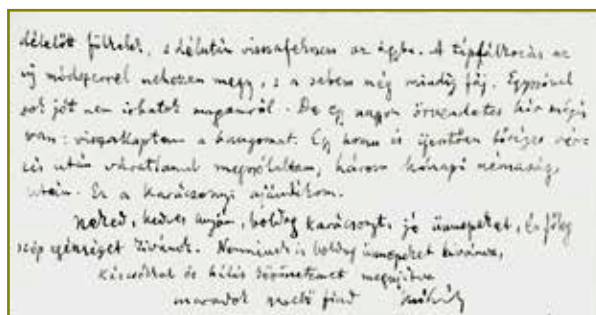 délelőtt fölkelek, s délután visszafekszem az ágyba. A táplálkozás az
új módszerrel nehezen megy, s a sebem még mindig fáj. Egyszóval
sok jót nem írhatok magamról. De egy nagyon örvendetes hír mégis
van: visszakaptam a hangomat. Egy hosszú és ijesztően bőséges vérz
és után váratlanul megszólaltam, három hónapi némaság
után. Ez a karácsonyi ajándékom.
Neked, kedves anyám, boldog karácsonyt, jó ünnepeket, és főleg
szép egészséget kívánok. is boldog ünnepeket kívánva,
kézcsókkal és hálás köszönetemet megújítva
maradok szerető fiad Mihály